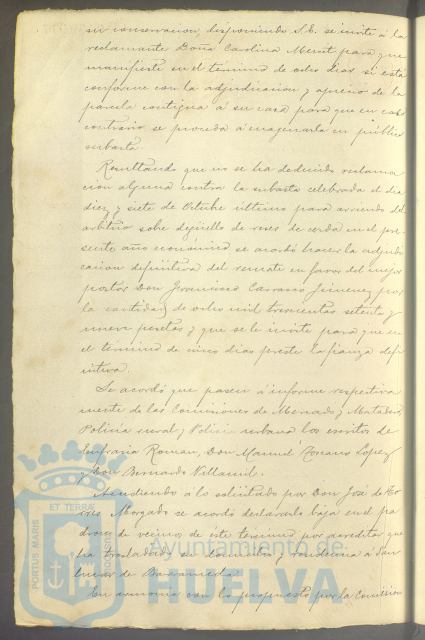 su conservacion, disponiendo S.E. se invite á la
reclamante Doña Carolina Mercet para que
manifieste en el término de ocho dias si está
conforme con la adjudicacion y aprecio de la
parcela contigua á su casa para que en caso
contrario se proceda á enagenarla en pública
subasta.
Resultando que no se ha deducido reclama
cion alguna contra la subasta celebrada el dia
diez y siete de Octubre último para arriendo del
arbitrio sobre degüello de reses de cerda en el pre-
sente año economico se acordó hacer la adjudi
cacion definitiva del remate en favor del mejor
postor Don Francisco Carrasco Jimenez por
la cantidad de ocho mil trescientas setenta y
nueve pesetas y que se le invite para que en
el término de cinco dias preste la fianza defi
nitiva.
Se acordó que pasen á informe respectiva
mente de las Comisiones de Mercado y Matadero,
Policía rural y Policía urbana los escritos de
Eufrasia Roman, Don Manuel Lopez
y Don Bernardo Villamil.
Accediendo á lo solicitado por Don José de To
rres Morgado se acordó declararlo baja en el pa
dron de vecinos de este término por acreditar que
ha trasladado su domicilio y residencia á San
lucar de Barrameda.
En armonia con lo propuesto por la Comision
PORTUS MARIS
ET TERRÆ
CUSTODIA
Ayuntamiento de
HUELVA